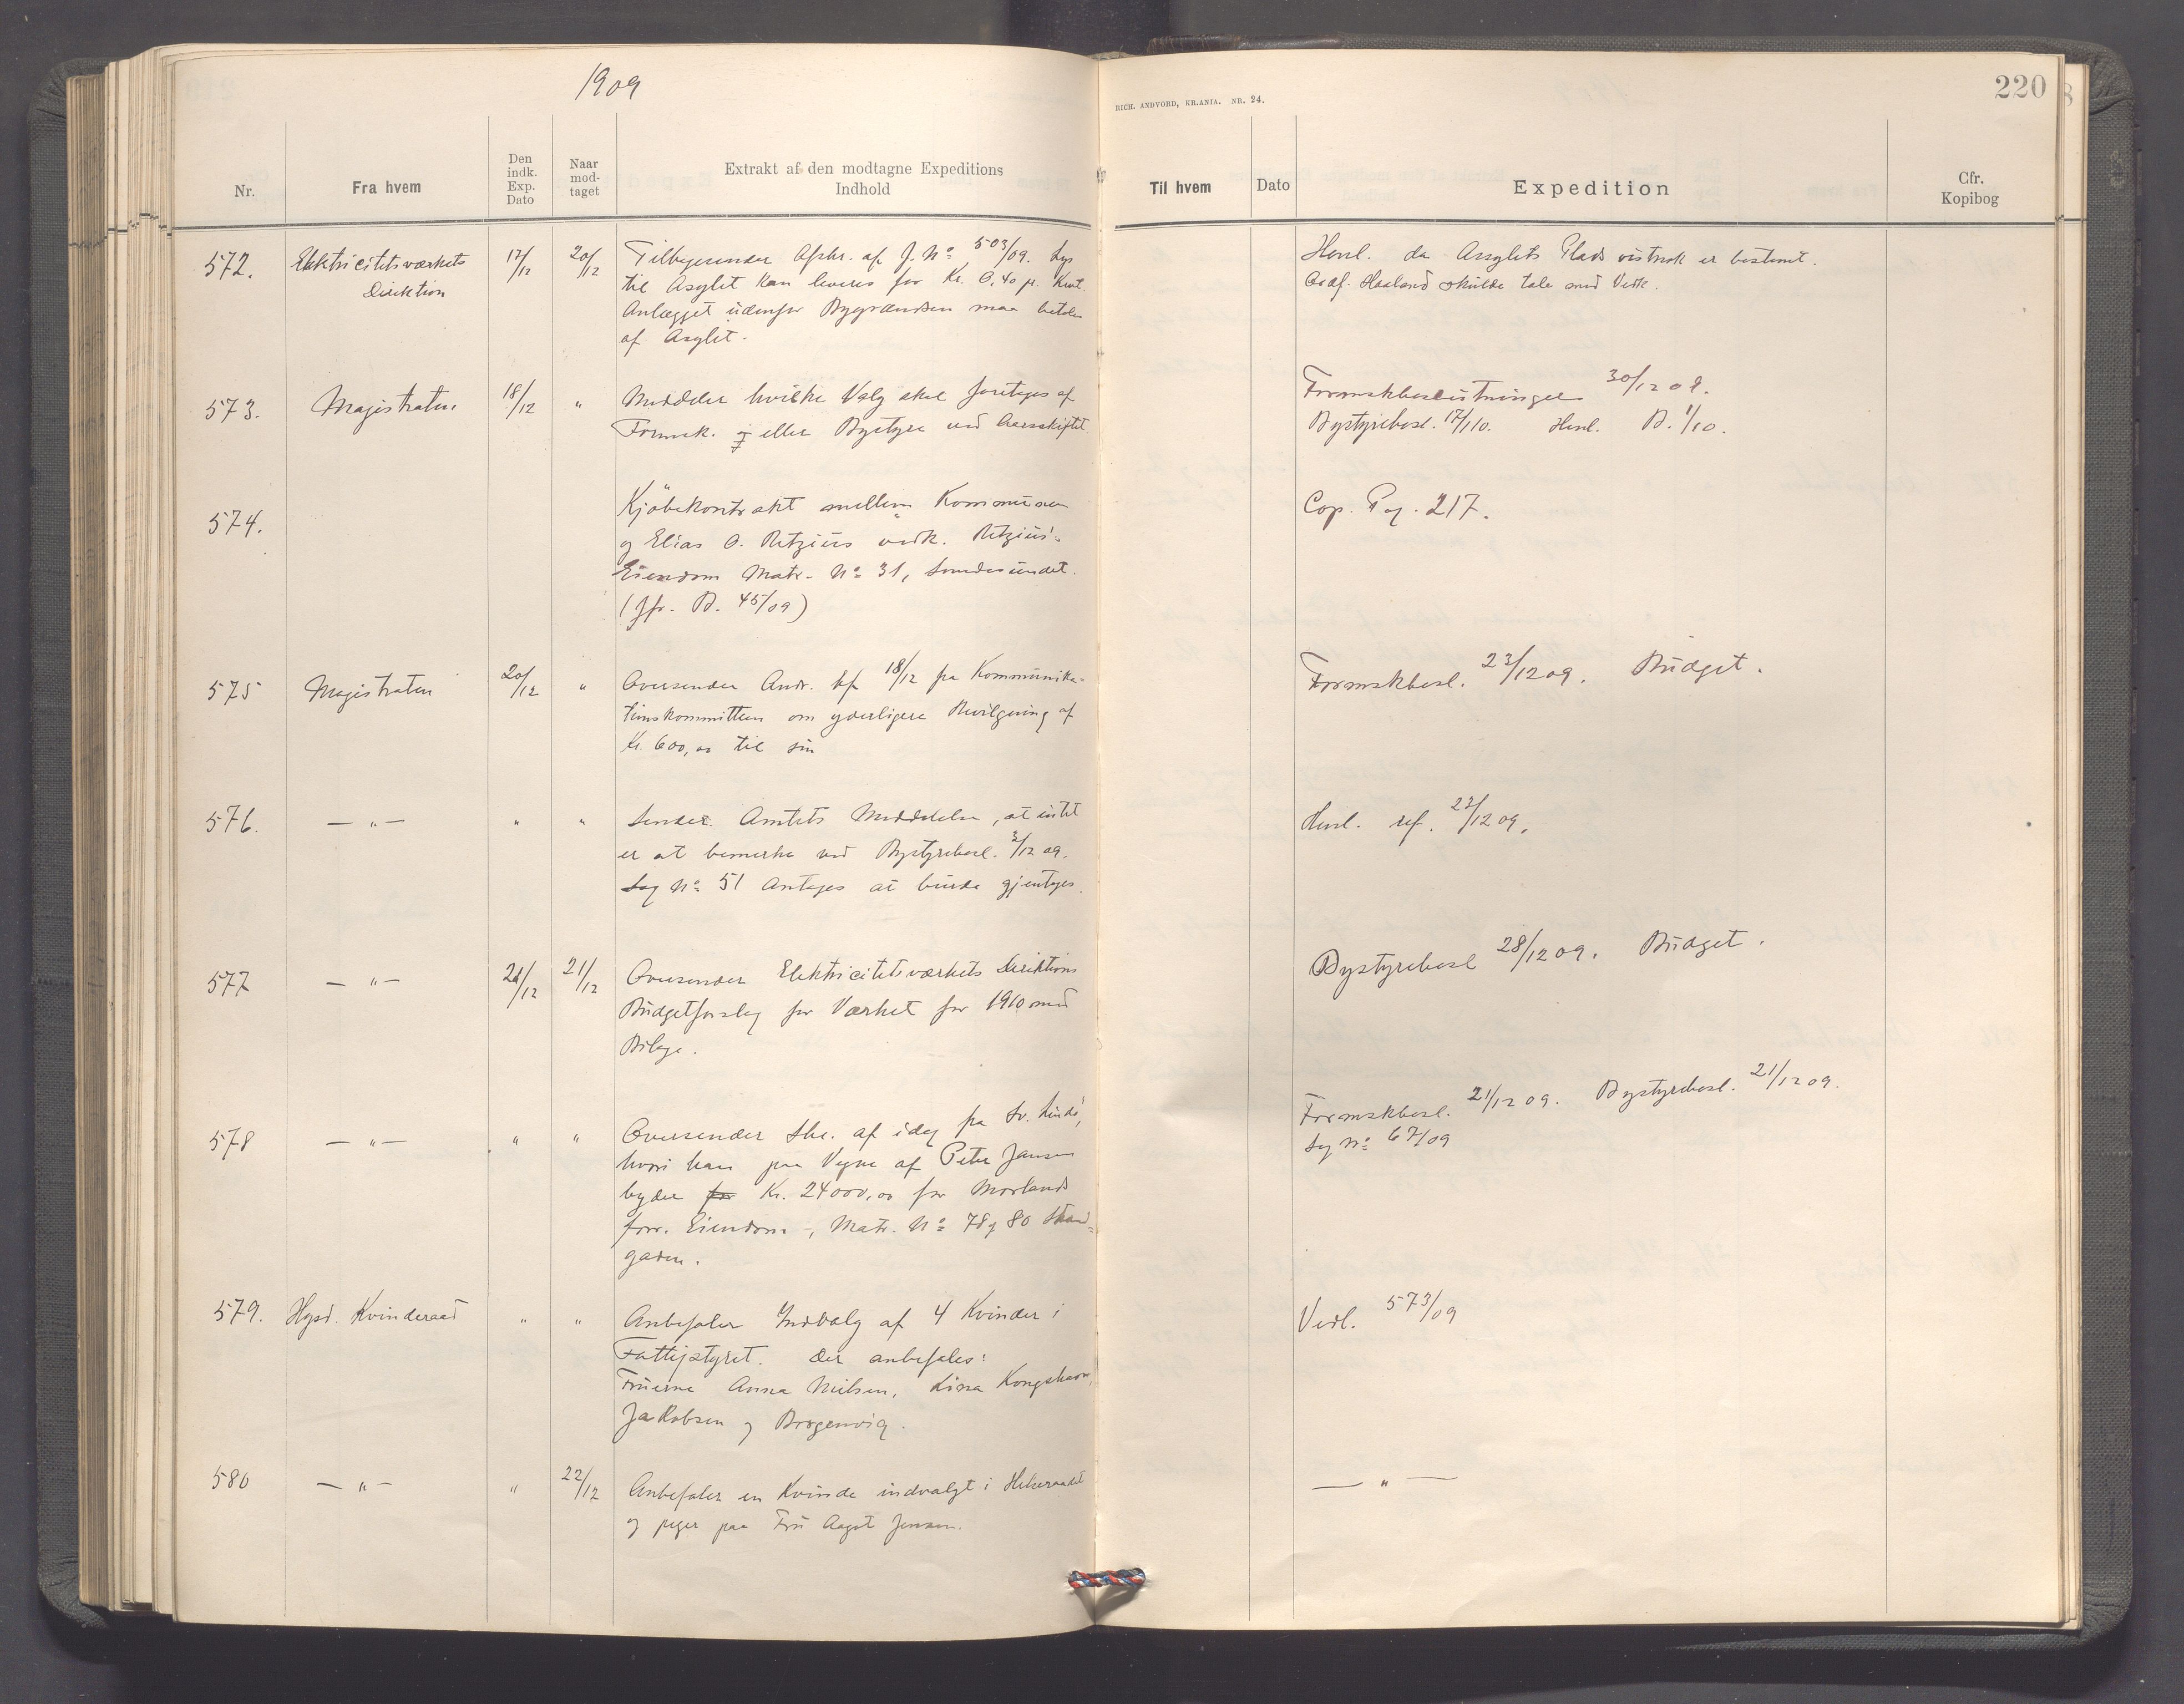 1909
RICH. ANDVORD, KR.ANIA. NR. 24.
220
Nr.
Fra hvem
Den indk. Exp. Dato
Naar mod-taget
Extrakt af den modtagne Expeditions Indhold
Til hvem
Dato
Expedition
Cfr. Kopibog
572. Elektricitetsværkets 17/12 20/12 Tilbagesender Afskr. af J. No 503/09. Lys
Direktion til Asylet kan leveres for Kr. 0,40 pr. Kwt.
Anlægget udenfor Bygrændsen maa betales
af Asylet.
Henl. da Asylets Plads vistnok er bestemt.
Haaland skulde tale med Vedk.
573. Magistraten 18/12 " Meddeler hvilke Valg skal foretages af
Formsk. og eller Bystyre ved Aarsskiftet.
Formskbeslutninger 30/12 09.
Bystyrebesl. 17/1 10. Henl. B. 1/10.
574. Kjöbekontrakt mellem Kommunen
og Elias O. Retzius vedk. Retzius's
Eiendom Matr. No 31, Smedesundet.
(Jfr. B. 45/09)
Cop. Pag. 217.
575 Magistraten 20/12 " Oversender Andr. af 18/12 fra Kommunika-
tionskommitteen om yderligere Bevilgning af
Kr. 600,00 til sin
Formskbesl. 23/12 09. Budget.
576. — " — " " Sender Amtets Meddelelse, at intet
er at bemerke ved Bystyrebesl. 3/12 09.
Sag No 51 antages at burde gjentages.
Henl. ref. 23/12 09.
577 — " — 21/12 21/12 Oversender Elektricitetsværkets Direktions
Budgetforslag for Værket for 1910 med
Bilage.
Bystyrebesl 28/12 09. Budget.
578 — " — " " Oversender Skr. af idag fra Sv. Lindö,
hvori han paa Vegne af Peter Jansen
byder for Kr. 24000,00 for Morlands
forr. Eiendom -, Matr. No 78 og 80 Strand-
gaden.
Formskbesl. 21/12 09. Bystyrebesl. 21/12 09.
Sag No 67/09
579. Hgsd. Kvinderaad " " Anbefaler Indvalg af 4 Kvinder i
Fattigstyret. Der anbefales:
Fruerne Anna Nielsen, Lina Kongshavn,
Jakobsen og Brogenvig.
Vedl. 573/09
580 — " — " 22/12 Anbefaler en Kvinde indvalgt i Helseraadet
og peger paa Fru Aagot Jensen.
— " —